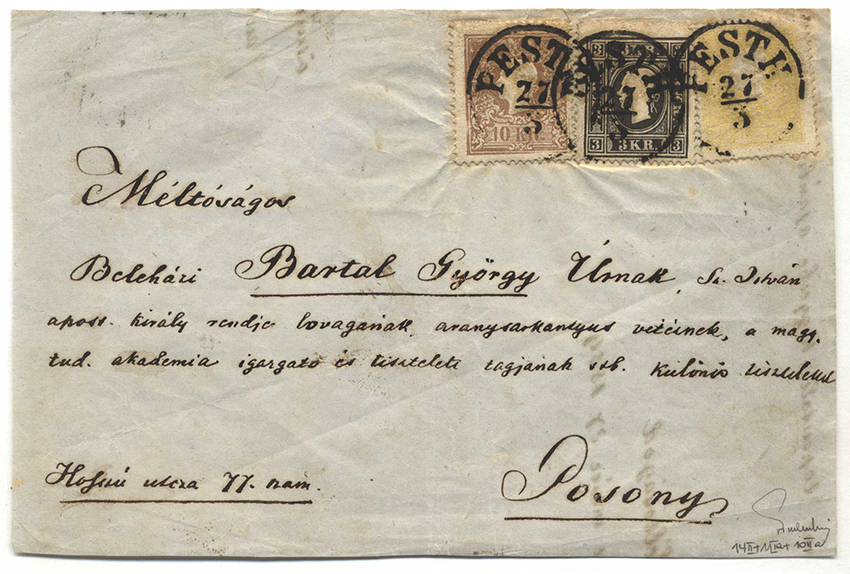 PESTH PESTH PESTH
27 27 27
3 3 3
10 KR.
3 KR. 3
3 3 KR. 3
Méltóságos
Beleházi Bartal György Úrnak, Sz. István
apost. király rendje lovagának, aranysarkantyus vitéznek, a magy.
tud. akademia igazgató és tiszteleti tagjának stb. különös tisztelettel
Hosszú utcza 77. szám.
Posony
14II+11Ia+10IIa